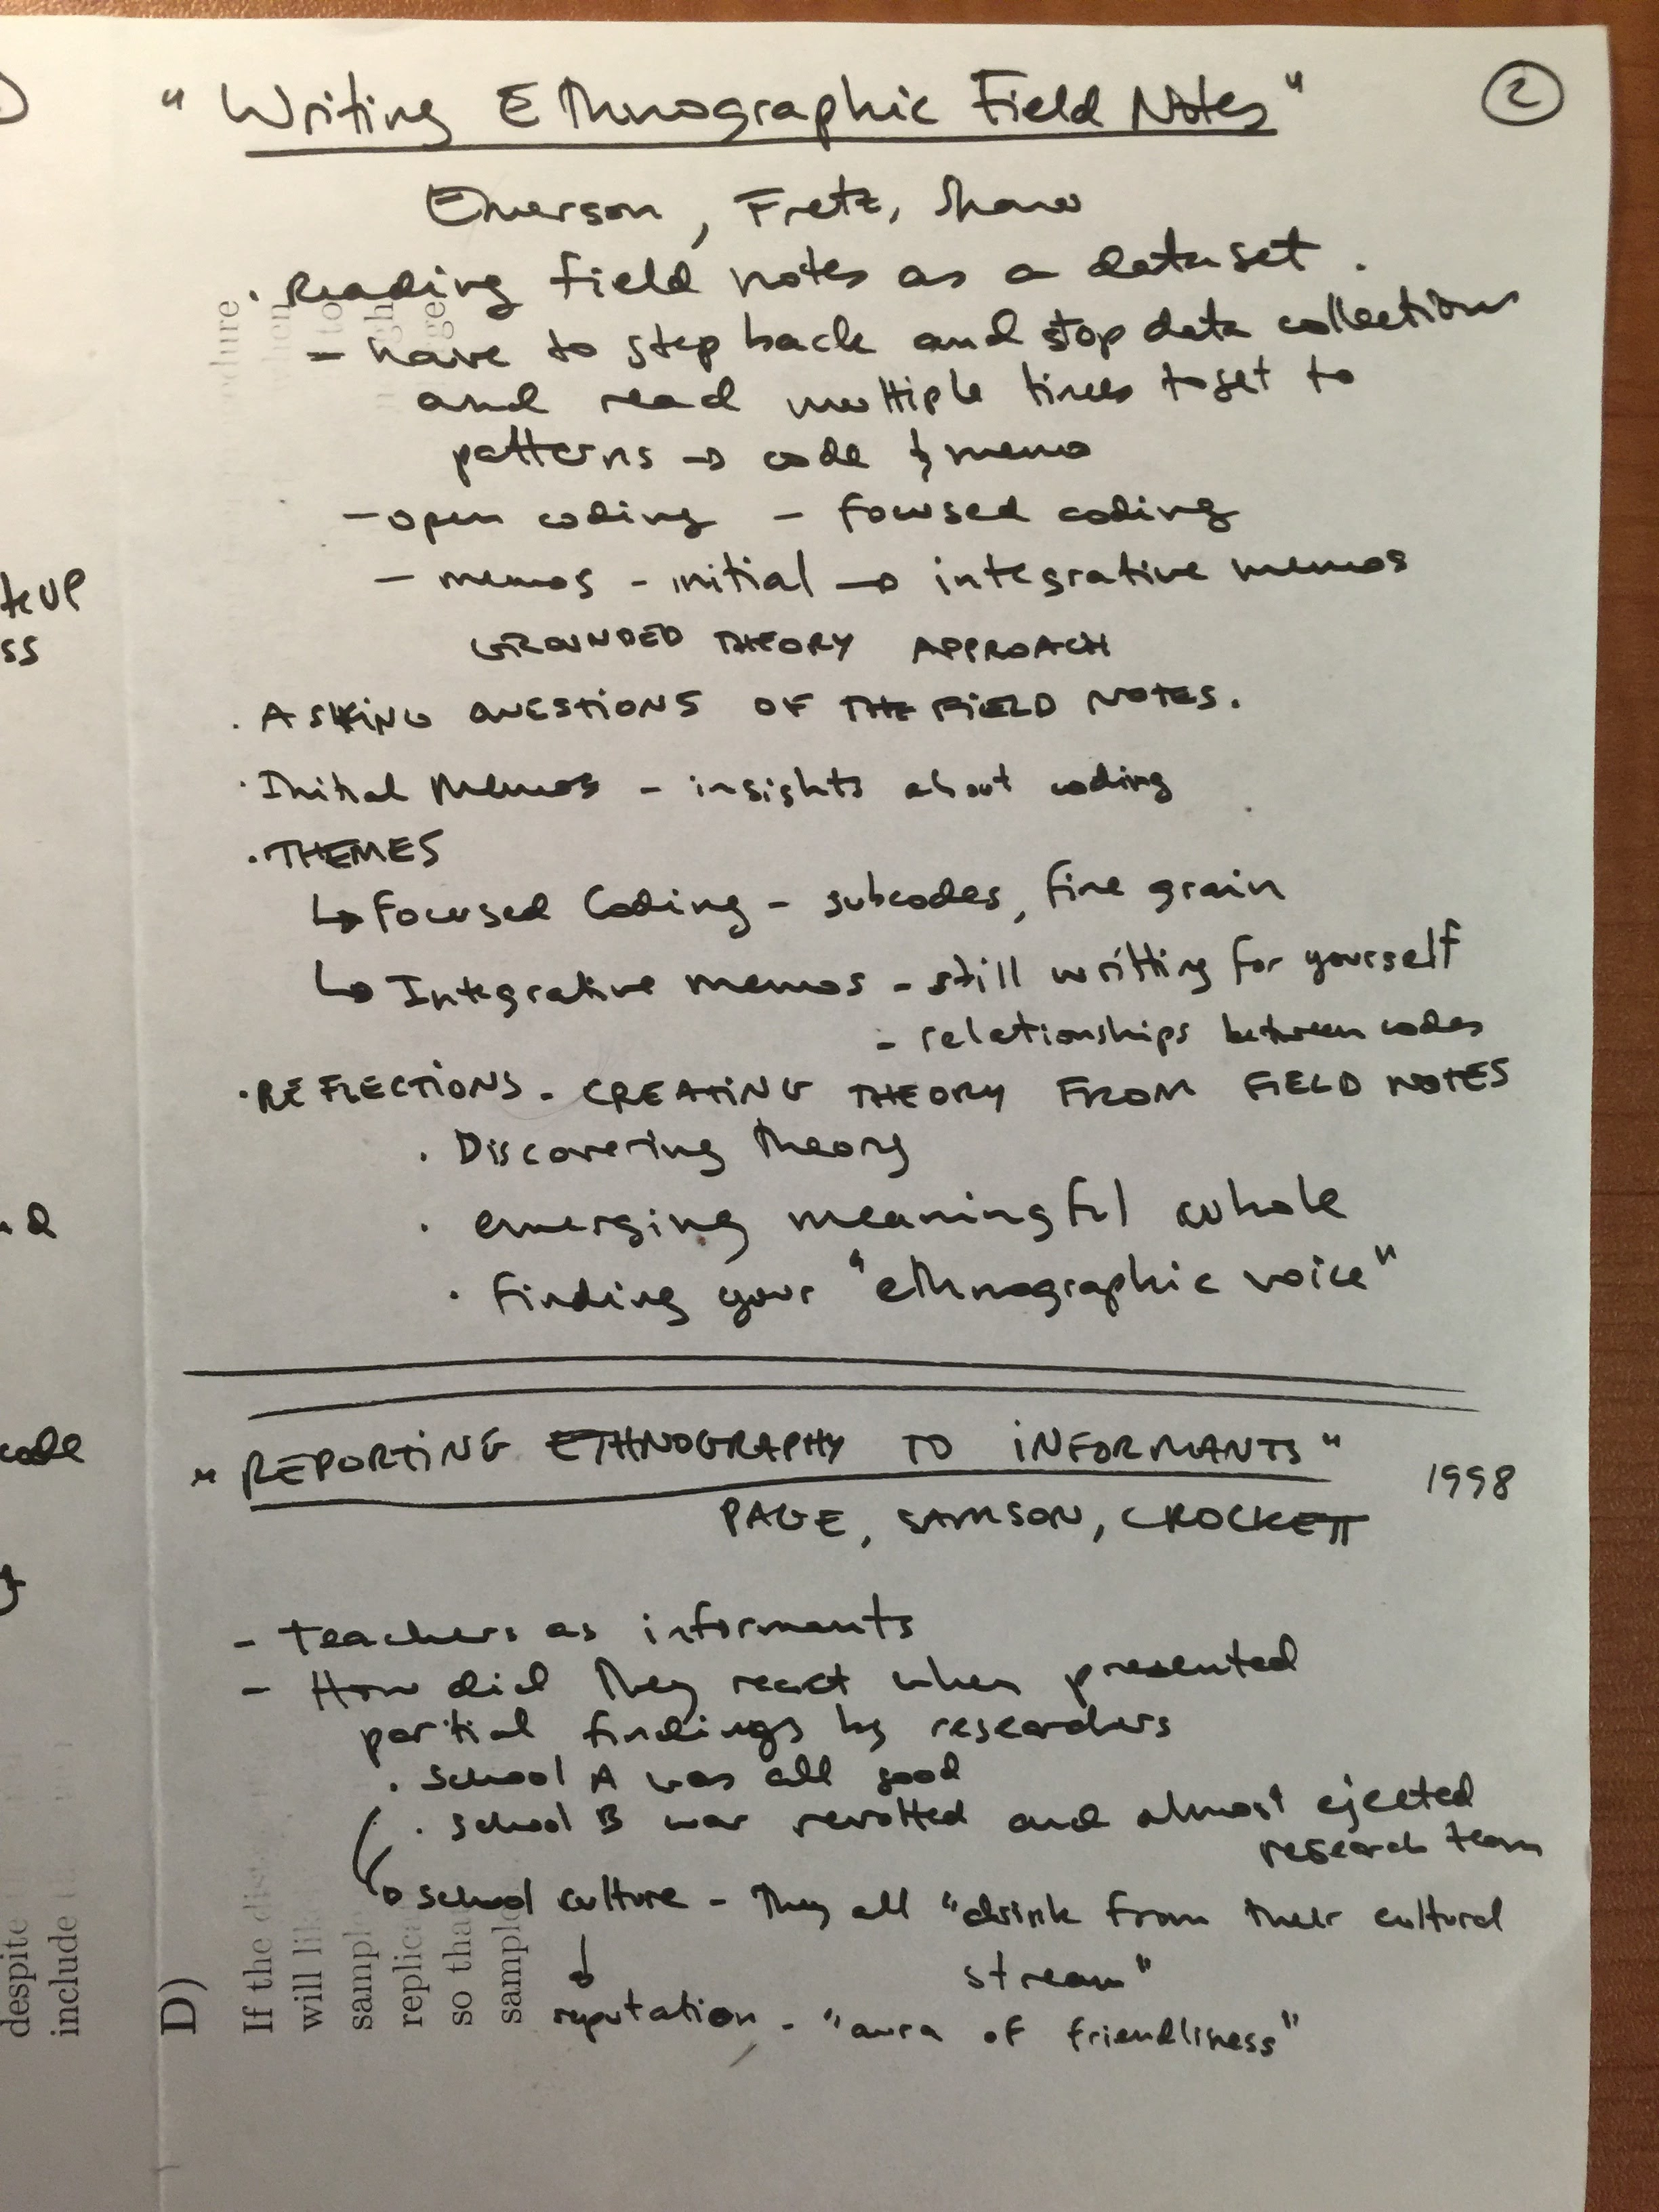 "Writing Ethnographic Field Notes"
2
Emerson, Fretz, Shaw
· Reading field notes as a dataset.
- have to step back and stop data collection
and read multiple times to get to
patterns → code & memo
- open coding - focused coding
- memos - initial → integrative memos
GROUNDED THEORY APPROACH
· ASKING QUESTIONS OF THE FIELD NOTES.
· Initial Memos - insights about coding
· THEMES
↳ Focused Coding - subcodes, fine grain
↳ Integrative memos - still writting for yourself
- relationships between codes
· REFLECTIONS - CREATING THEORY FROM FIELD NOTES
· Discovering theory
· emerging meaningful whole
· finding your "ethnographic voice"
"REPORTING ETHNOGRAPHY TO INFORMANTS"
1998
PAGE, SAMSON, CROCKETT
- teachers as informants
- How did they react when presented
partial findings by researchers
· School A was all good
· School B was revolted and almost ejected
research team
→ school culture - They all "drink from their cultural
stream"
↓
reputation - "aura of friendliness"
te UP
ss
code
despite
include
D)
If the dis
will li
sampl
replic
so tha
sampl